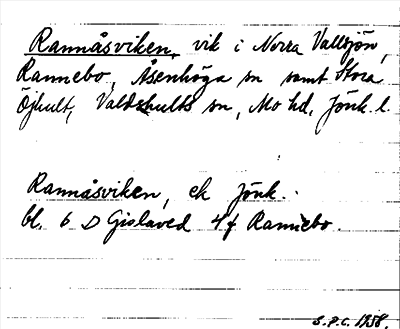 Rannåsviken, vik i Norra Vallsjön,
Rannebo, Åsenhöga sn samt Stora
Öjhult, Valdshults sn, Mo hd, Jönk. l.
Rannåsviken, ek Jönk.
bl. 6 D Gislaved 4f Rannebo.
S.P.C. 1958.